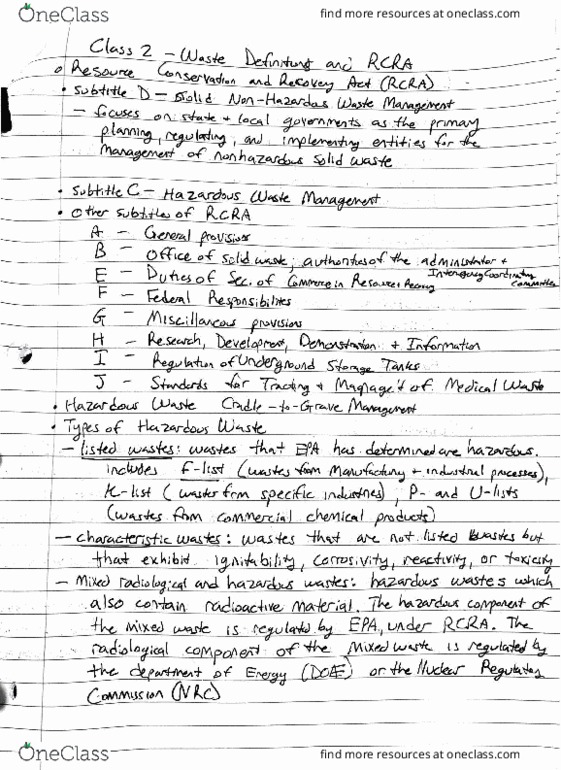 OneClass
find more resources at oneclass.com
Class 2 - Waste Definitions and RCRA
Resource Conservation and Recovery Act (RCRA)
• Subtitle D - Solid Non-Hazardous Waste Management
- focuses on state + local governments as the primary
planning, regulating, and implementing entities for the
management of nonhazardous solid waste
• Subtitle C - Hazardous Waste Management
• Other subtitles of RCRA
A - General provisions
B - Office of Solid waste; authorities of the administrator +
Interagency Coordinating
E - Duties of Sec. of Commerce in Resource Recovery
committee
F - Federal Responsibilities
G - Miscillaneous provisions
H - Research, Development, Demonstration + Information
I - Regulation of Underground Storage Tanks
J - Standards for Tracking + of Medical Waste
• Hazardous Waste Cradle-to-Grave Management
• Types of Hazardous Waste
- listed wastes: wastes that EPA has determined are hazardous.
includes F-list (wastes from Manufactury + industrial processes),
K-list (wastes from specific industries), P- and U-lists
(wastes from commercial chemical products)
- characteristic wastes: wastes that are not listed wastes but
that exhibit ignitability, corrosivity, reactivity, or toxicity
- Mixed radiological and hazardous wastes: hazardous wastes which
also contain radioactive material. The hazardous component of
the mixed waste is regulated by EPA, under RCRA. The
radiological component of the mixed waste is regulated by
the department of Energy (DOE) or the Nuclear Regulatory
Commission (NRC)
OneClass
find more resources at oneclass.com